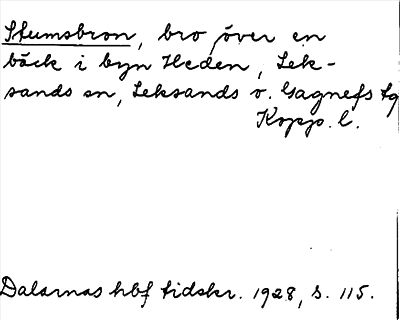 Skumsbron, bro över en
bäck i byn Heden, Lek-
sands sn, Leksands o. Gagnefs tg
Kopp. l.
Dalarnas hbf tidskr. 1928, s. 115.